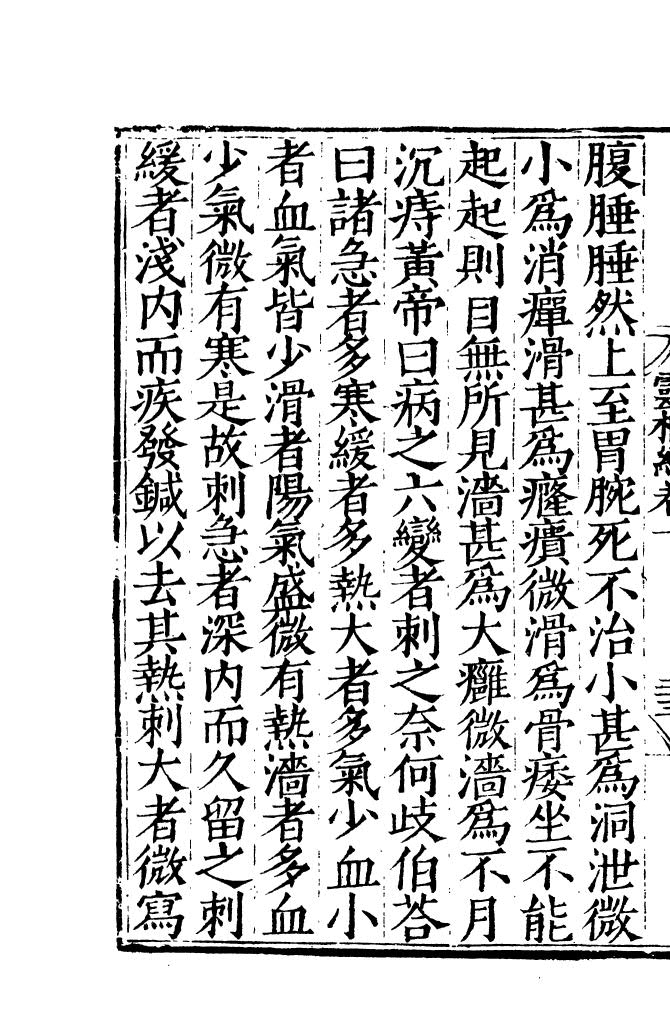 腹腄腄然上至胃脘死不治小甚爲洞泄微
小爲消癉滑甚爲癃㿉微滑爲骨痿坐不能
起起則目無所見濇甚爲大癰微濇爲不月
沉痔黃帝曰病之六變者刺之柰何歧伯荅
曰諸急者多寒緩者多熱大者多氣少血小
者血氣皆少滑者陽氣盛微有熱濇者多血
少氣微有寒是故刺急者深内而久留之刺
緩者淺内而疾發鍼以去其熱刺大者微寫